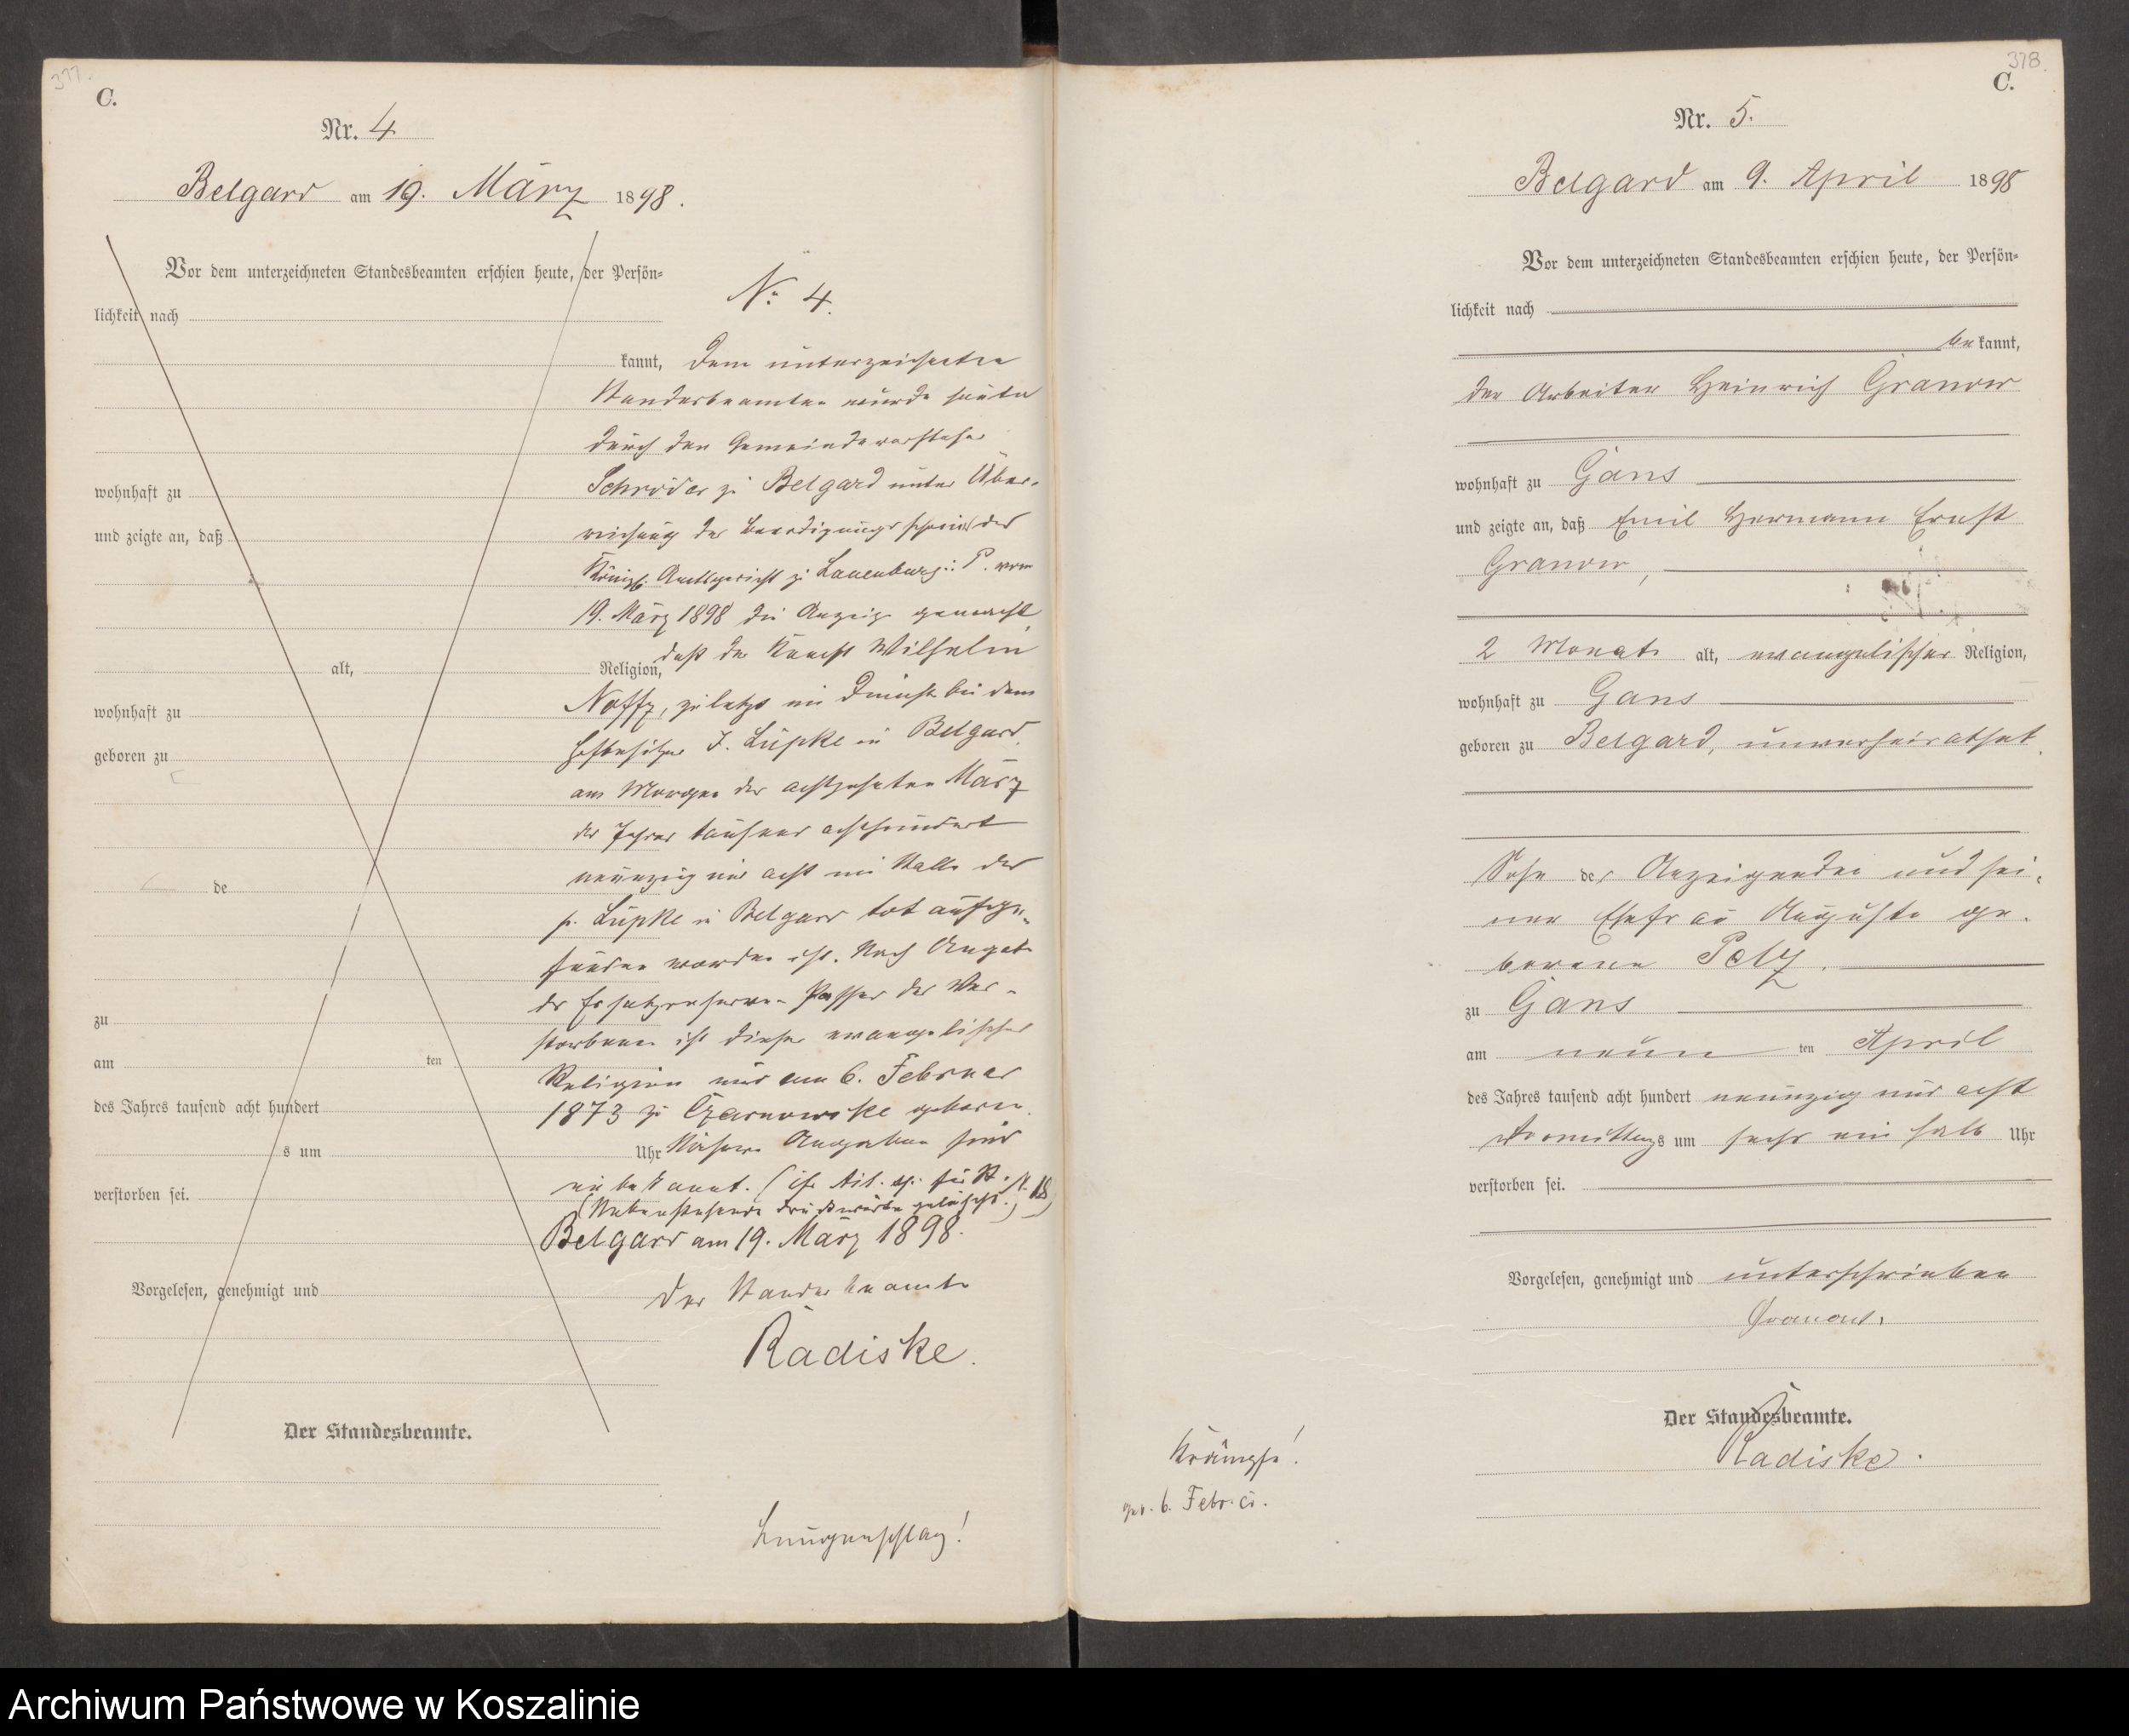 377.
C.
Nr. 4
Belgard am 19. März 1898.
Vor dem unterzeichneten Standesbeamten erschien heute, der Persön-
lichkeit nach
kannt,
wohnhaft zu
und zeigte an, daß
alt, Religion,
wohnhaft zu
geboren zu
de
zu
am ten
des Jahres tausend acht hundert
s um Uhr
verstorben sei.
Vorgelesen, genehmigt und
Der Standesbeamte.
No 4.
Dem unterzeichneten
Standesbeamten wurde heute
durch den Gemeindevorsteher
Schröder zu Belgard unter Über-
reichung des Beerdigungsscheins des
Königl. Amtsgericht zu Lauenburg i. P. vom
19. März 1898 die Anzeige gemacht,
daß der Knecht Wilhelm
Noffz, zuletzt im Dienst bei dem
Hofbesitzer J. Lüpke in Belgard,
am Morgen des achtzehnten März
des Jahres tausend achthundert
neunzig und acht im Stalle des
p. Lüpke in Belgard tot aufge-
funden worden ist. Nach Angabe
des Ersatzreserve-Passes des Ver-
storbenen ist dieser evangelischer
Religion und am 6. Februar
1873 zu Czarnowske geboren.
Nähere Angaben sind
unbekannt.
(Nebenstehende Druckworte gelöscht.)
Belgard am 19. März 1898.
Der Standesbeamte
Radiske.
Lungenschlag!
378.
C.
Nr. 5.
Belgard am 9. April 1898
Vor dem unterzeichneten Standesbeamten erschien heute, der Persön-
lichkeit nach
be kannt,
der Arbeiter Heinrich Granow
wohnhaft zu Gans
und zeigte an, daß Emil Hermann Ernst
Granow,
2 Monate alt, evangelischer Religion,
wohnhaft zu Gans
geboren zu Belgard, unverheirathet,
Sohn des Anzeigenden und sei-
ner Ehefrau Auguste ge-
borene Pelz.
zu Gans
am neun ten April
des Jahres tausend acht hundert neunzig und acht
Vormittags um sechs ein halb Uhr
verstorben sei.
Vorgelesen, genehmigt und unterschrieben
Granow.
Der Standesbeamte.
Radiske.
Krämpfe!
geb. 6. Febr. cr.
Archiwum Państwowe w Koszalinie